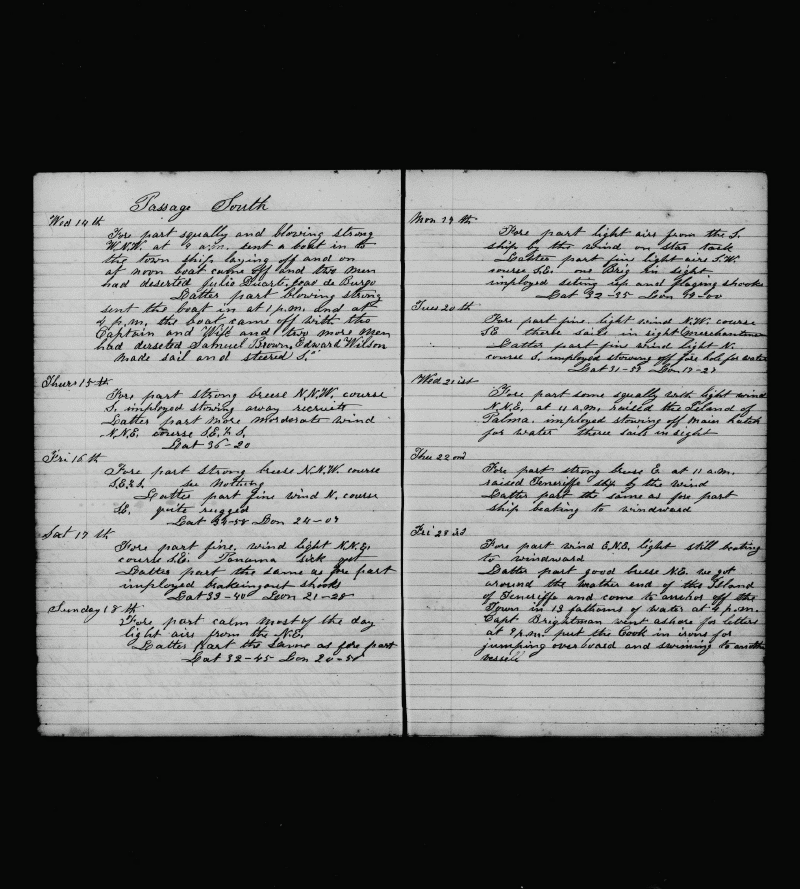 Passage South
Wed 14 th
Fore part squally and blowing strong
W.N.W. at 9 a.m. sent a boat in to
the town ship laying off and on
at noon boat came off and two men
had deserted Julio Duart. Joao de Burgo
Latter part blowing strong
sent the boat in at 1 p.m. and at
4 p.m. the boat came off with the
Captain and Wife and two more men
had derseted Samuel Brown, Edward Wilson
made sail and steered S.
Thurs 15 th
Fore part strong breese N.N.W. course
S. imployed stowing away recruits
Latter part more morderate wind
N.N.E. course S.E. & S.
Lat 36-20
Fri 16 th
Fore part strong breese N.N.W. course
S.E. & S. see nothing
Latter part fine wind N. course
S.E. quite rugged
Lat 34-58 Lon 24-07
Sat 17 th
Fore part fine, wind light N.N.E.
course S.E. Panama sick
Latter part the same as fore part
imployed shakeing out shooks
Lat 33-40 Lon 21-28
Sunday 18 th
Fore part calm most of the day
light airs from the N.E.
Latter part the same as fore part
Lat 32-45 Lon 20-50
Mon 19 th
Fore part light airs from the S.
ship by the wind on star tack
Latter part fine light airs S.W.
course S.E. one Brig in sight
imployed seting up and flaging shooks
Lat 32-35 Lon 19-00
Tues 20 th
Fore part fine, light wind N.W. course
S.E. three sails in sight merchantmen
Latter part fine wind light N.
course S. imployed stowing off fore hole for water
Lat 31-57 Lon 17-27
Wed 21 ist
Fore part some squally with light wind
N.N.E. at 11 a.m. raised the Island of
Palma, imployed stowing off main hatch
for water three sails in sight
Thu 22 ond
Fore part strong breese E at 11 a.m.
raised Teneriffe ship by the wind
Latter part the same as fore part
ship beating to windward
Fri 23 rd
Fore part wind E.N.E. light still beating
to windward
Latter part good breese N.E. we got
around the wather end of the Island
of Teneriffe and come to anchor off the
Town in 13 fathoms of water at 4 p.m.
Capt. Brightman went ashore for letters
at 9 p.m. put the Cook in irons for
jumping overboard and swiming to another
vessell